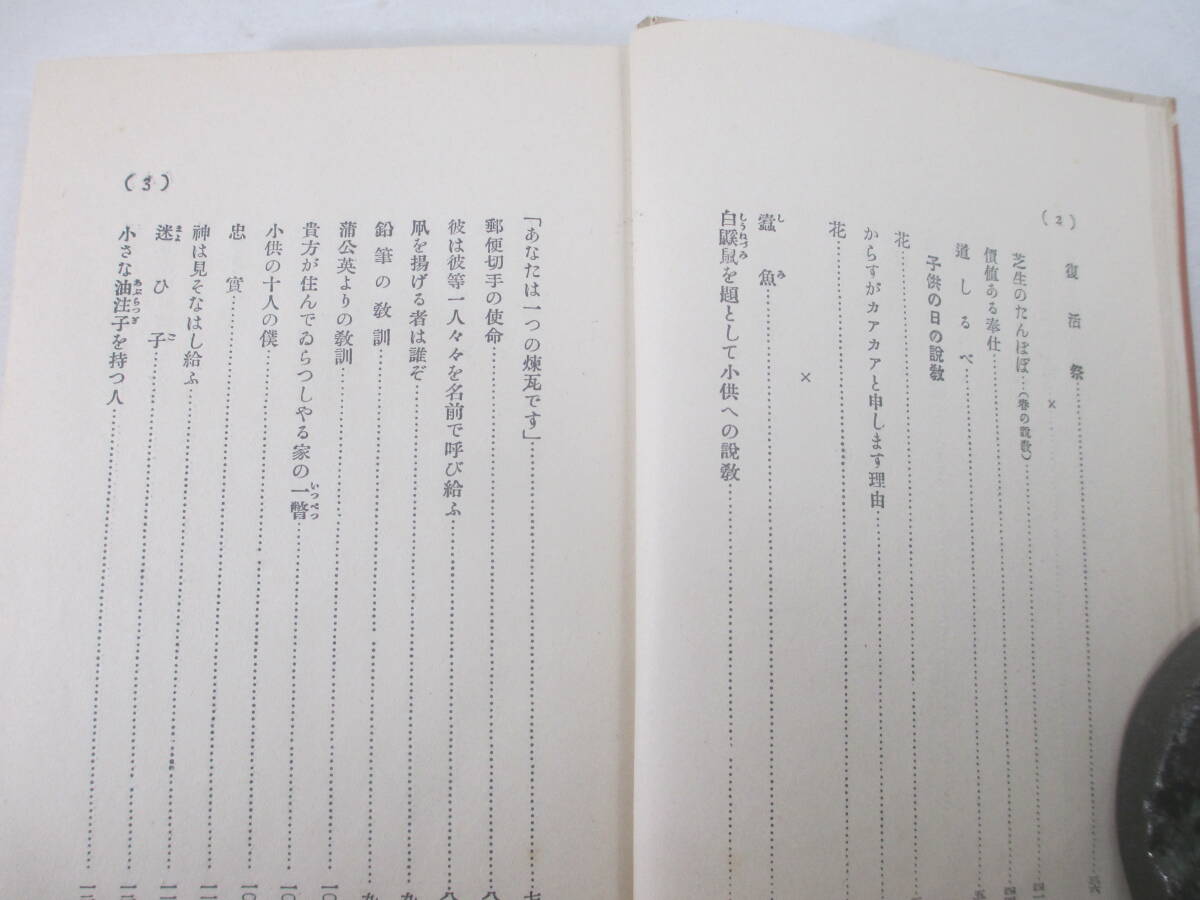 (2)
復活祭……三六
×
芝生のたんぽぽ…(春の説教)……四一
價値ある奉仕……四
道しるべ……五
子供の日の説教
花……
からすがカアカアと申します理由……
花……
×
蠧魚……
白鼷鼠を題として小供への説教……
(3)
「あなたは一つの煉瓦です」……七
郵便切手の使命……八
彼は彼等一人々々を名前で呼び給ふ……八
凧を揚げる者は誰ぞ……九
鉛筆の教訓……九
蒲公英よりの教訓……一〇
貴方が住んでゐらつしやる家の一瞥……一〇
小供の十人の僕……一〇
忠實……一一
神は見そなはし給ふ……一一
迷ひ子……一二
小さな油注子を持つ人……一二